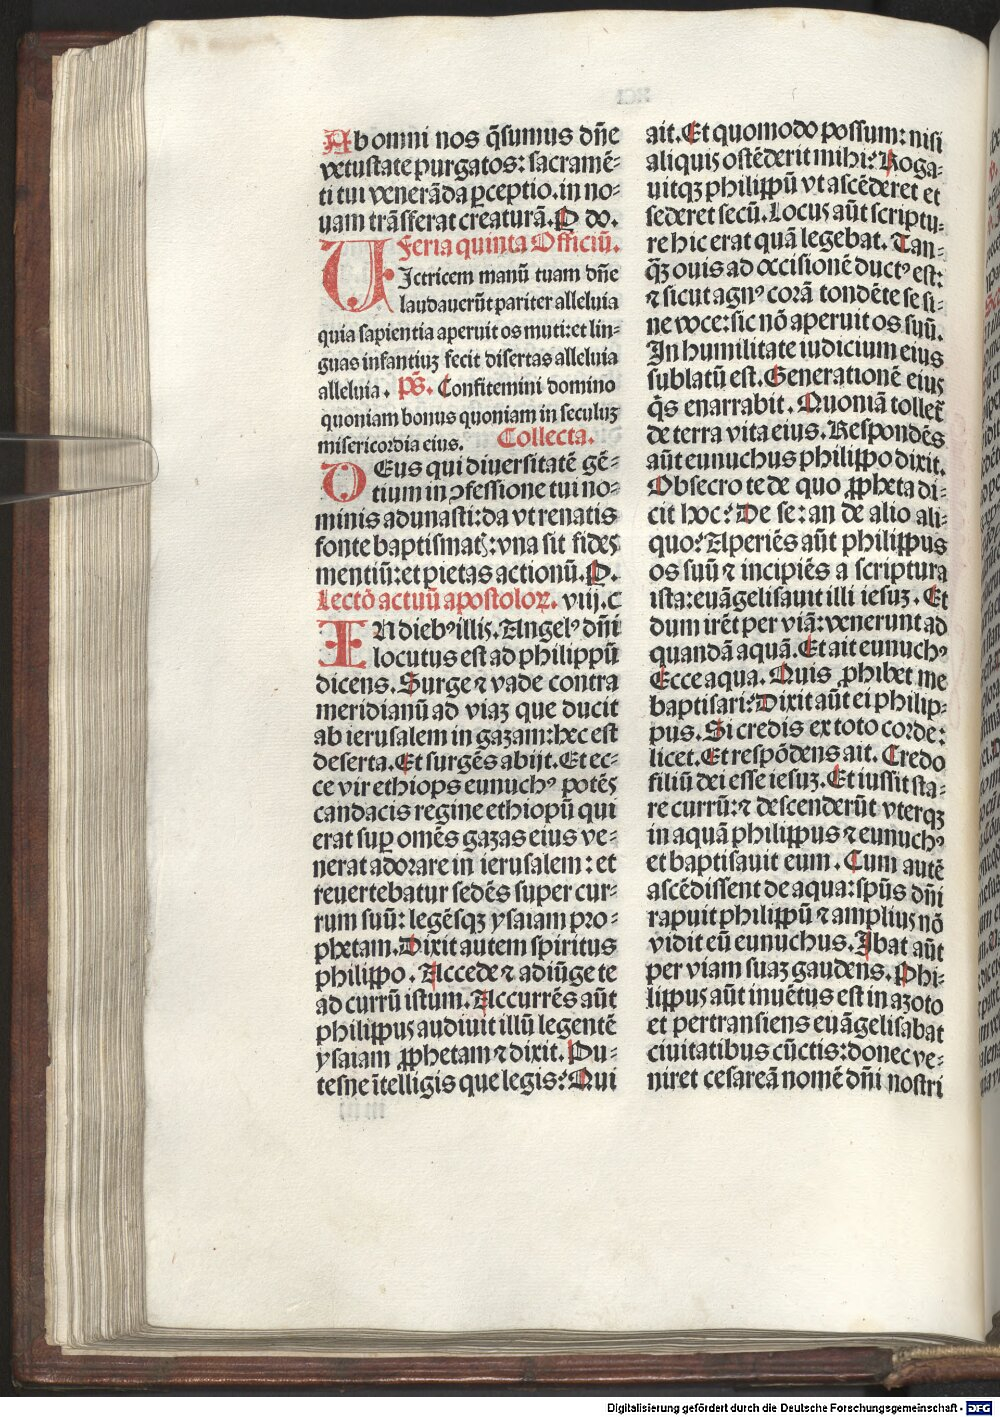 Ab omni nos q̃sumus dñe
vetustate purgatos: sacramē-
ti tui venerāda ꝑceptio. in no-
uam trāsferat creaturā. P do.
Feria quinta Officiū.
UIctricem manū tuam dñe
laudauerūt pariter alleluia
quia sapientia aperuit os muti: et lin-
guas infantiuꝫ fecit disertas alleluia
alleluia. ps̄. Confitemini domino
quoniam bonus quoniam in seculuꝫ
misericordia eius. Collecta.
DEus qui diuersitatē gē-
tium in ꝯfessione tui no-
minis adunasti: da vt renatis
fonte baptismatꝭ: vna sit fides
mentiū: et pietas actionū. P.
Lectō actuū apostoloꝝ. viij. c
IN diebꝰ illis. Angelꝰ dñi
locutus est ad philippū
dicens. Surge ⁊ vade contra
meridianū ad viaꝫ que ducit
ab ierusalem in gazam: hec est
deserta. Et surgēs abijt. Et ec-
ce vir ethiops eunuchꝰ potēs
candacis regine ethiopū qui
erat suꝑ omēs gazas eius ve-
nerat adorare in ierusalem: et
reuertebatur sedēs super cur-
rum suū: legēsqꝫ ysaiam pro-
phetam. Dixit autem spiritus
philippo. Accede ⁊ adiūge te
ad currū istum. Accurrēs aūt
philippus audiuit illū legentē
ysaiam ꝓphetam ⁊ dixit. Pu-
tesne ītelligis que legis? Qui
ait. Et quomodo possum: nisi
aliquis ostēderit mihi? Roga-
uitqꝫ philippū vt ascēderet et
sederet secū. Locus aūt scriptu-
re hic erat quā legebat. Tan-
q̄ꝫ ouis ad occisionē ductꝰ est:
⁊ sicut agnꝰ corā tondēte se si-
ne voce: sic nō aperuit os suū.
In humilitate iudicium eius
sublatū est. Generationē eius
q̄s enarrabit. Quoniā tolletᷣ
de terra vita eius. Respondēs
aūt eunuchus philippo dixit.
Obsecro te de quo ꝓpheta di-
cit hoc? De se: an de alio ali-
quo? Aperiēs aūt philippus
os suū ⁊ incipiēs a scriptura
ista: euāgelisauit illi iesuꝫ. Et
dum irēt per viā: venerunt ad
quandā aquā. Et ait eunuchꝰ
Ecce aqua. Quis ꝓhibet me
baptisari? Dixit aūt ei philip-
pus. Si credis ex toto corde:
licet. Et respōdens ait. Credo
filiū dei esse iesuꝫ. Et iussit sta-
re currū: ⁊ descenderūt vterqꝫ
in aquā philippus ⁊ eunuchꝰ
et baptisauit eum. Cum autē
ascēdissent de aqua: spūs dñi
rapuit philippū ⁊ amplius nō
vidit eū eunuchus. Ibat aūt
per viam suaꝫ gaudens. Phi-
lippus aūt inuētus est in azoto
et pertransiens euāgelisabat
ciuitatibus cūctis: donec ve-
niret cesareā nomē dñi nostri
Digitalisierung gefördert durch die Deutsche Forschungsgemeinschaft - DFG